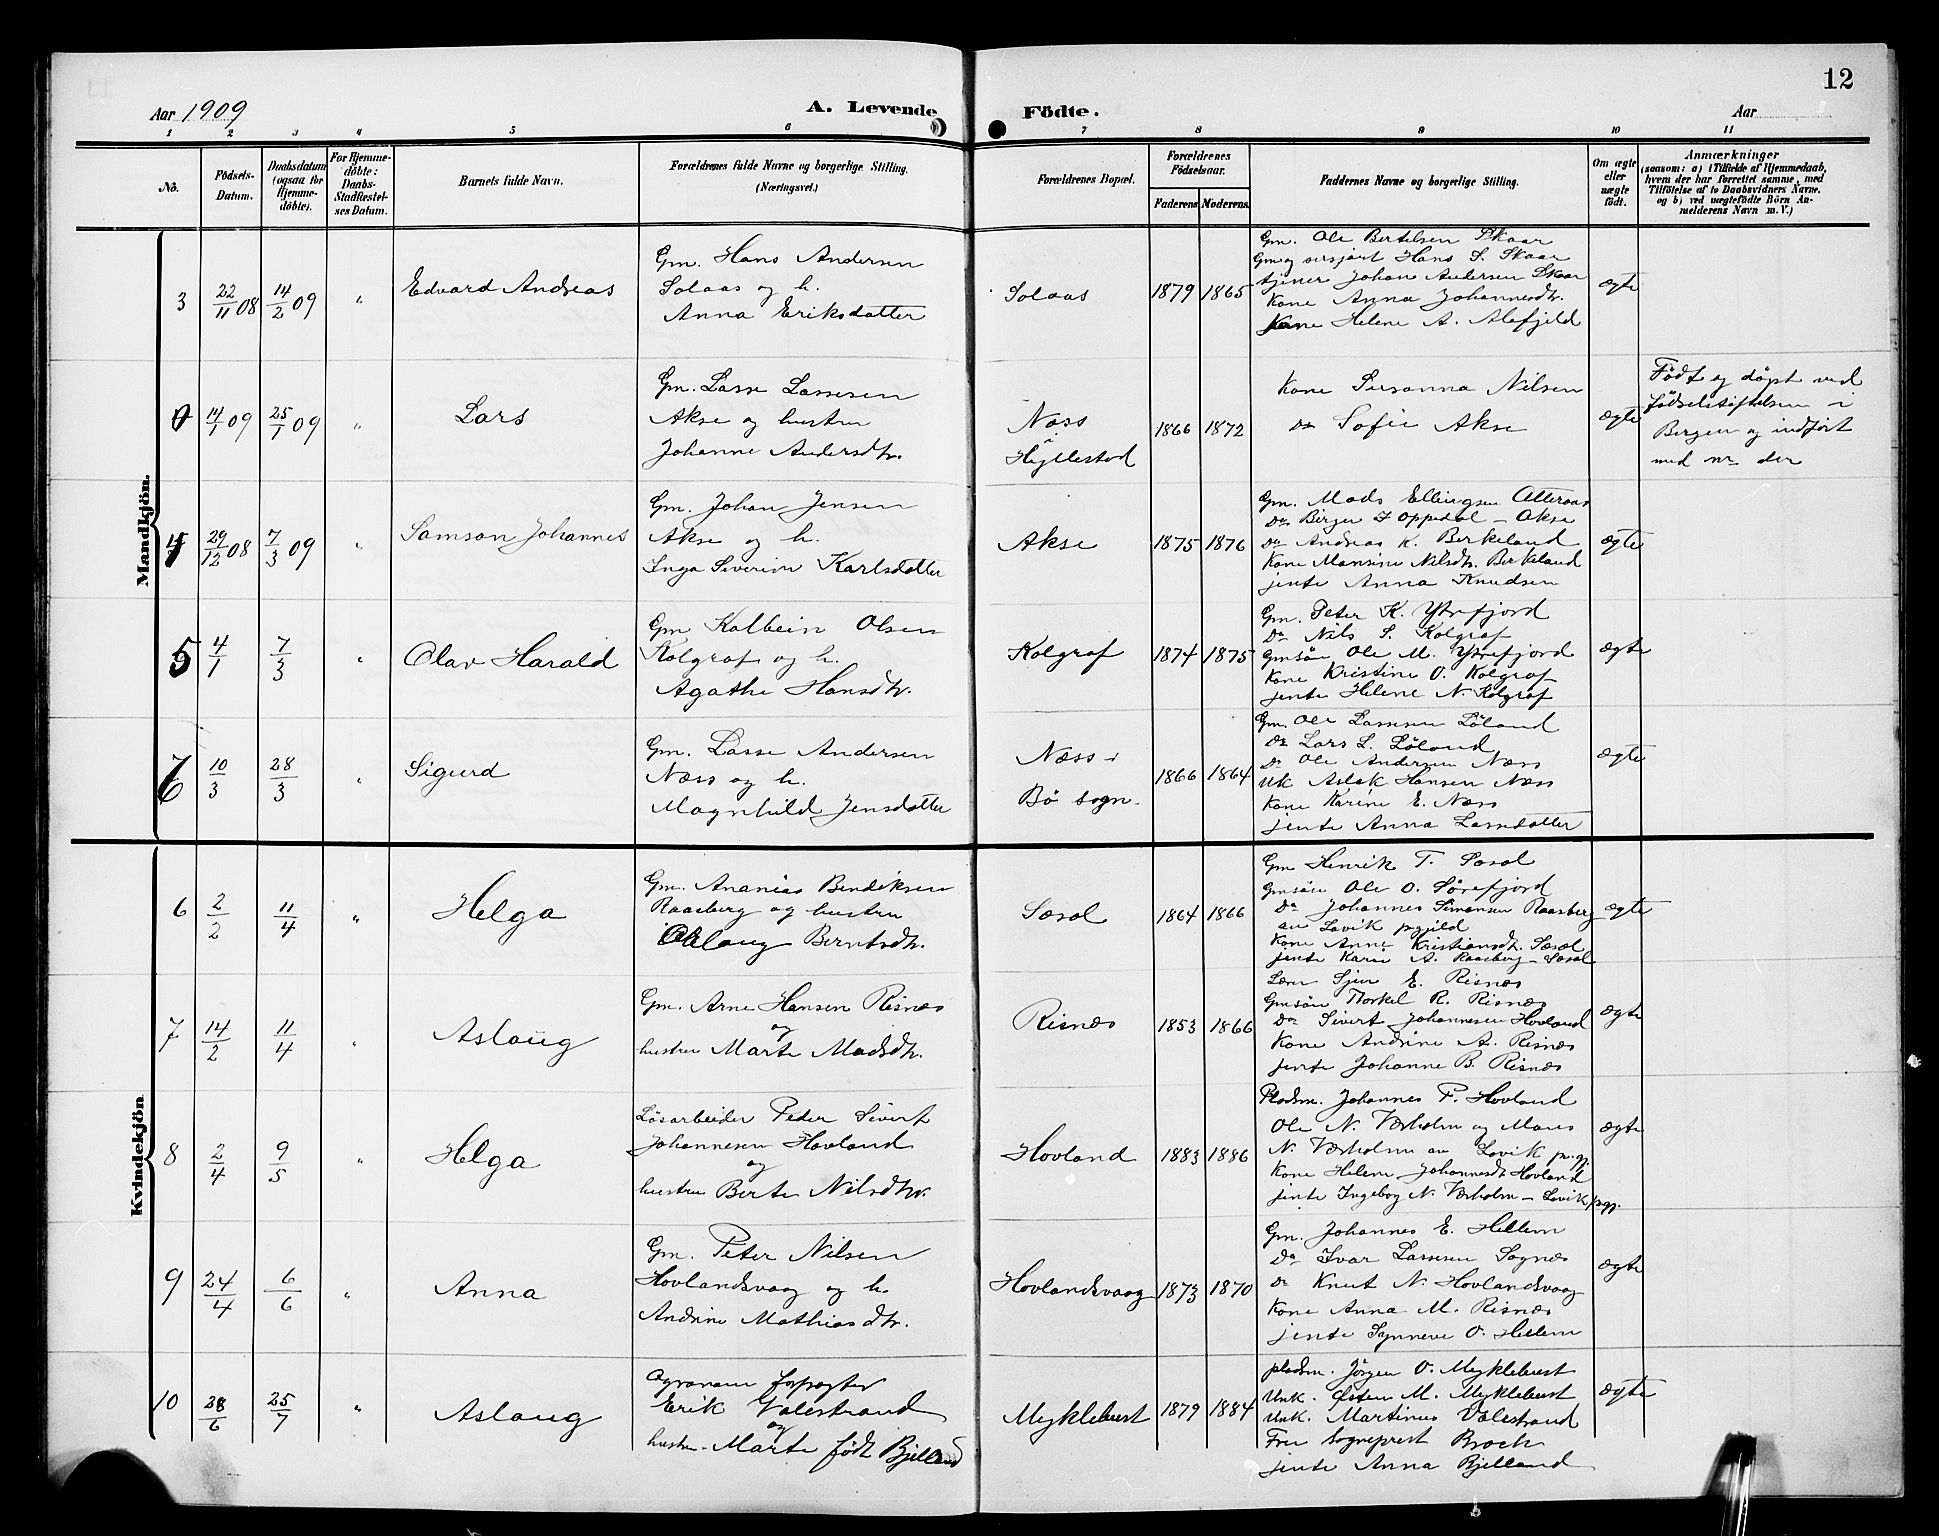 12
Aar 1909
A. Levende Födte.
Aar
1 2 3 4 5 6 7 8 9 10 11
No.
Födsels-
Datum.
Daabsdatum
(ogsaa for
Hjemme-
döbte).
For Hjemme-
döbte:
Daabs-
Stadfæstel-
ses Datum.
Barnets fulde Navn.
Forældrenes fulde Navne og borgerlige Stilling.
(Næringsvei.)
Forældrenes Bopæl.
Forældrenes
Födselsaar.
Faderens Moderens
Faddernes Navne og borgerlige Stilling.
Om ægte
eller
uægte
födt.
Anmærkninger
(saasom: a) i Tilfælde af Hjemmedaab,
hvem der har forrettet samme, med
Tilföielse af to Daabsvidners Navne.
og b) ved uægtefödte Börn An-
melderens Navn m. V.)
Mandkjön.
3 22/11 08 14/2 09 " Edvard Andreas
Gm. Hans Andersen
Solaas og h.
Anna Eriksdatter
Solaas 1879 1865
Gm. Ole Bertelsen Skaar
Gm og sersjant Hans S. Skaar
tjener Johan Andersen Skaar
Kone Anna Johannesdtr.
Kone Helene A. Alefjeld
ægte
0 14/1 09 25/1 09 " Lars
Gm. Lasse Lassesen
Akse og hustru
Johanne Andersdtr.
Næss
i
Hyllestad
1866 1872
Kone Susanna Nilsen
Do Sofie Akse
ægte
Født og døpt ved
fødselstiftelsen i
Bergen og indført
med nr der
4 29/12 08 7/3 09 " Samson Johannes
Gm. Johan Jensen
Akse og h.
Inga Severine Karlsdatter
Akse 1875 1876
Gm. Mads Ellingsen Atteraas
Do Birger I Oppedal - Akse
Do Andreas K. Birkeland
Kone Mansine Nilsdtr. Birkeland
jente Anna Knudsen
ægte
5 4/1 7/3 " Olav Harald
Gm Kolbein Olsen
Kolgraf og h.
Agathe Hansdtr.
Kolgraf 1874 1875
Gm. Peter K. Ytrefjord
Do Nils S. Kolgraf
Gmsøn Ole M. Ytrefjord
Kone Kristine O. Kolgraf
jente Helene N Kolgraf
ægte
6 10/3 28/3 " Sigurd
Gm. Lasse Andersen
Næss og h.
Magnhild Jensdatter
Næss i
Bø sogn.
1866 1864
Gm. Ole Lassesen Løland
Do Lars L. Løland
Do Ole Andersen Næss
Uk Aslak Hansen Næss
Kone Karine E. Næss
jente Anna Larsdatter
ægte
Kvindekjön
6 2/2 11/4 " Helga
Gm. Ananias Bendiksen
Raasberg og hustru
Oblaug Berntsdtr.
Sæsol 1864 1866
Gm Henrik T. Sæsol
Gmsøn Ole O. Sørefjord
Do Johannes Simonsen Raasberg
av Lavik pgjeld
Kone Anne Kristiansdtr. Sæsol
jente Kari A. Raasberg - Sæsol
ægte
7 14/2 11/4 " Aslaug
Gm. Arne Hansen Risnæs
og
hustru Marte Madsdtr.
Risnæs 1853 1866
Lærer Sjur E. Risnæs
Gmsøn Thorkel R. Risnæs
Do Sivert Johannesen Hovland
Kone Andrine A. Risnæs
jente Johanne B. Risnæs
ægte
8 2/4 9/5 " Helga
Løsarbeider Peder Sivert
Johannesen Hovland
og
hustru Berte Nilsdtr.
Hovland 1883 1886
Pladsm. Johannes P. Hovland
Ole N. Værholm og Mons
N. Værholm av Lavik pr.gj.
Kone Helene Johannesdtr Hovland
jente Ingeborg N. Værholm - Lavik prgj.
ægte
9 24/4 6/6 " Anna
Gm. Peter Nilsen
Hovlandsvaag og h.
Andrine Mathiasdtr.
Hovlandsvaag 1873 1870
Gm. Johannes E. Hellem
Do Ivar Lassesen Sognæs
Do Knut N. Hovlandsvaag
Kone Anna M. Risnæs
jente Synneve O. Hellem
ægte
10 28/6 25/7 " Aslaug
Agronom forpagter
Erik Valestrand
og
hustru - Marte født Bjelland
Myklebust 1879 1884
pladsm. Jørgen O. Myklebust
Unk. Østen M. Myklebust
Unk. Martinus Valestrand
Fru Sogneprest Broch
jente Anna Bjelland
ægte